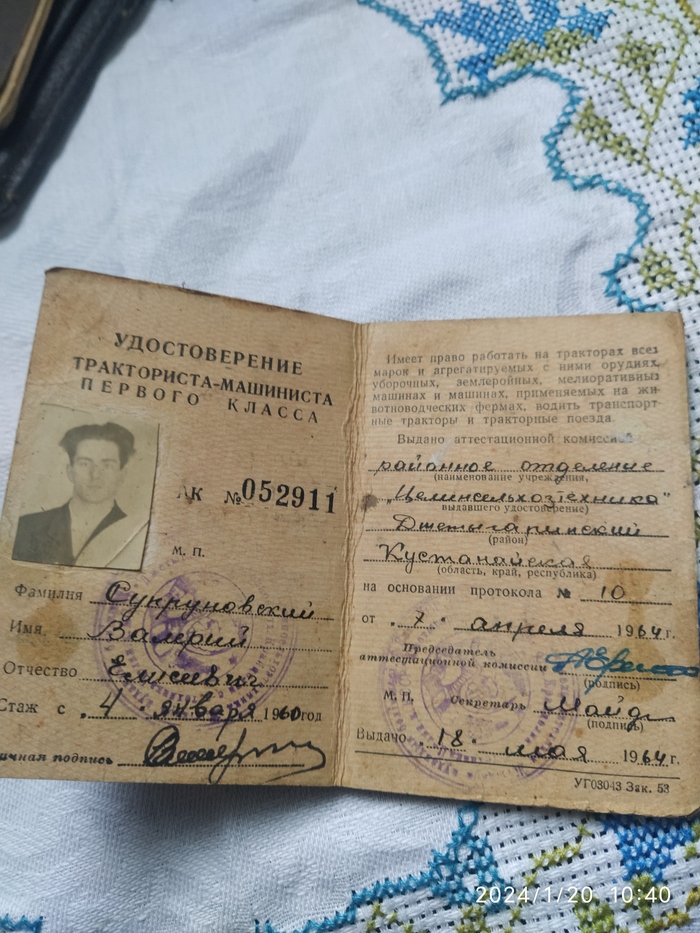 УДОСТОВЕРЕНИЕ
ТРАКТОРИСТА-МАШИНИСТА
ПЕРВОГО КЛАССА
АК №052911
М. П.
Фамилия Сукруновский
Имя Валерий
Отчество Елисеевич
Стаж с „4 января 1960 год
Личная подпись
Имеет право работать на тракторах всех
марок и агрегатируемых с ними орудиях,
уборочных, землеройных, мелиоративных
машинах и машинах, применяемых на жи-
вотноводческих фермах, водить транспорт-
ные тракторы и тракторные поезда.
Выдано аттестационной комиссией
районное отделение
(наименование учреждения,
„Целинсельхозтехника"
выдавшего удостоверение)
Джетыгаринский
(район)
Кустанайская
(область, край, республика)
на основании протокола № 10
от „7" апреля 1964 г.
Председатель
аттестационной комиссии
(подпись)
М. П. Секретарь
(подпись)
Выдано „18" мая 1964 г.
УГ03043 Зак. 53
2024/1/20 10:40